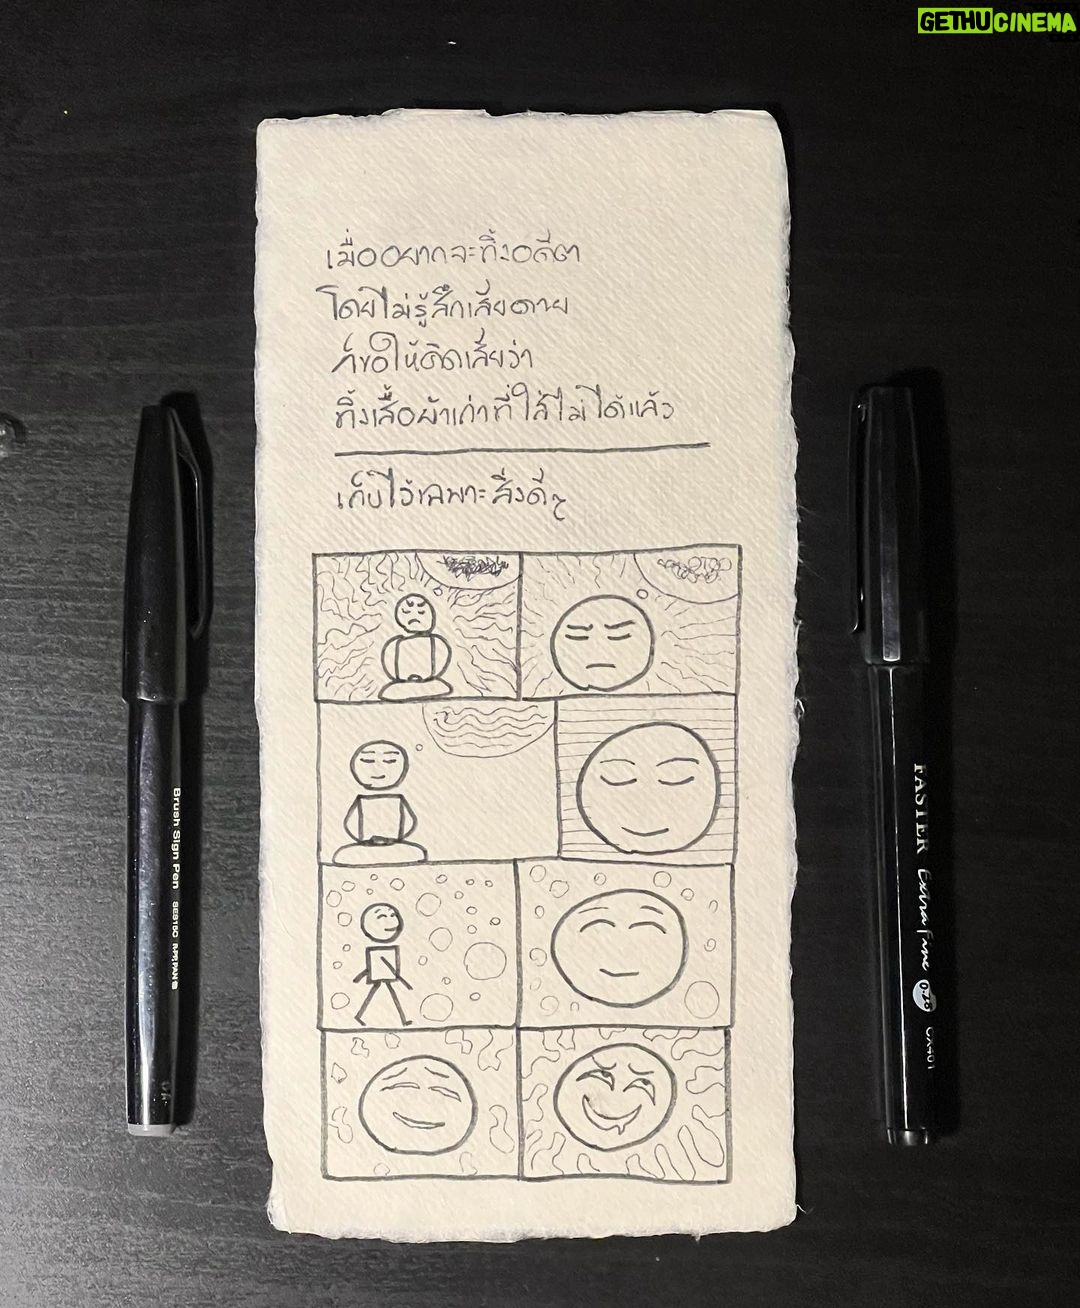 GETHUCINEMA
เมื่ออยากจะทิ้งอดีต
โดยไม่รู้สึกเสียดาย
ก็ขอให้คิดเสียว่า
ทิ้งเสื้อผ้าเก่าที่ใส่ไม่ได้แล้ว
เก็บไว้เฉพาะสิ่งดีๆ
Brush Sign Pen SES15C JAPAN
FASTER Extra fine 0.28 CX401